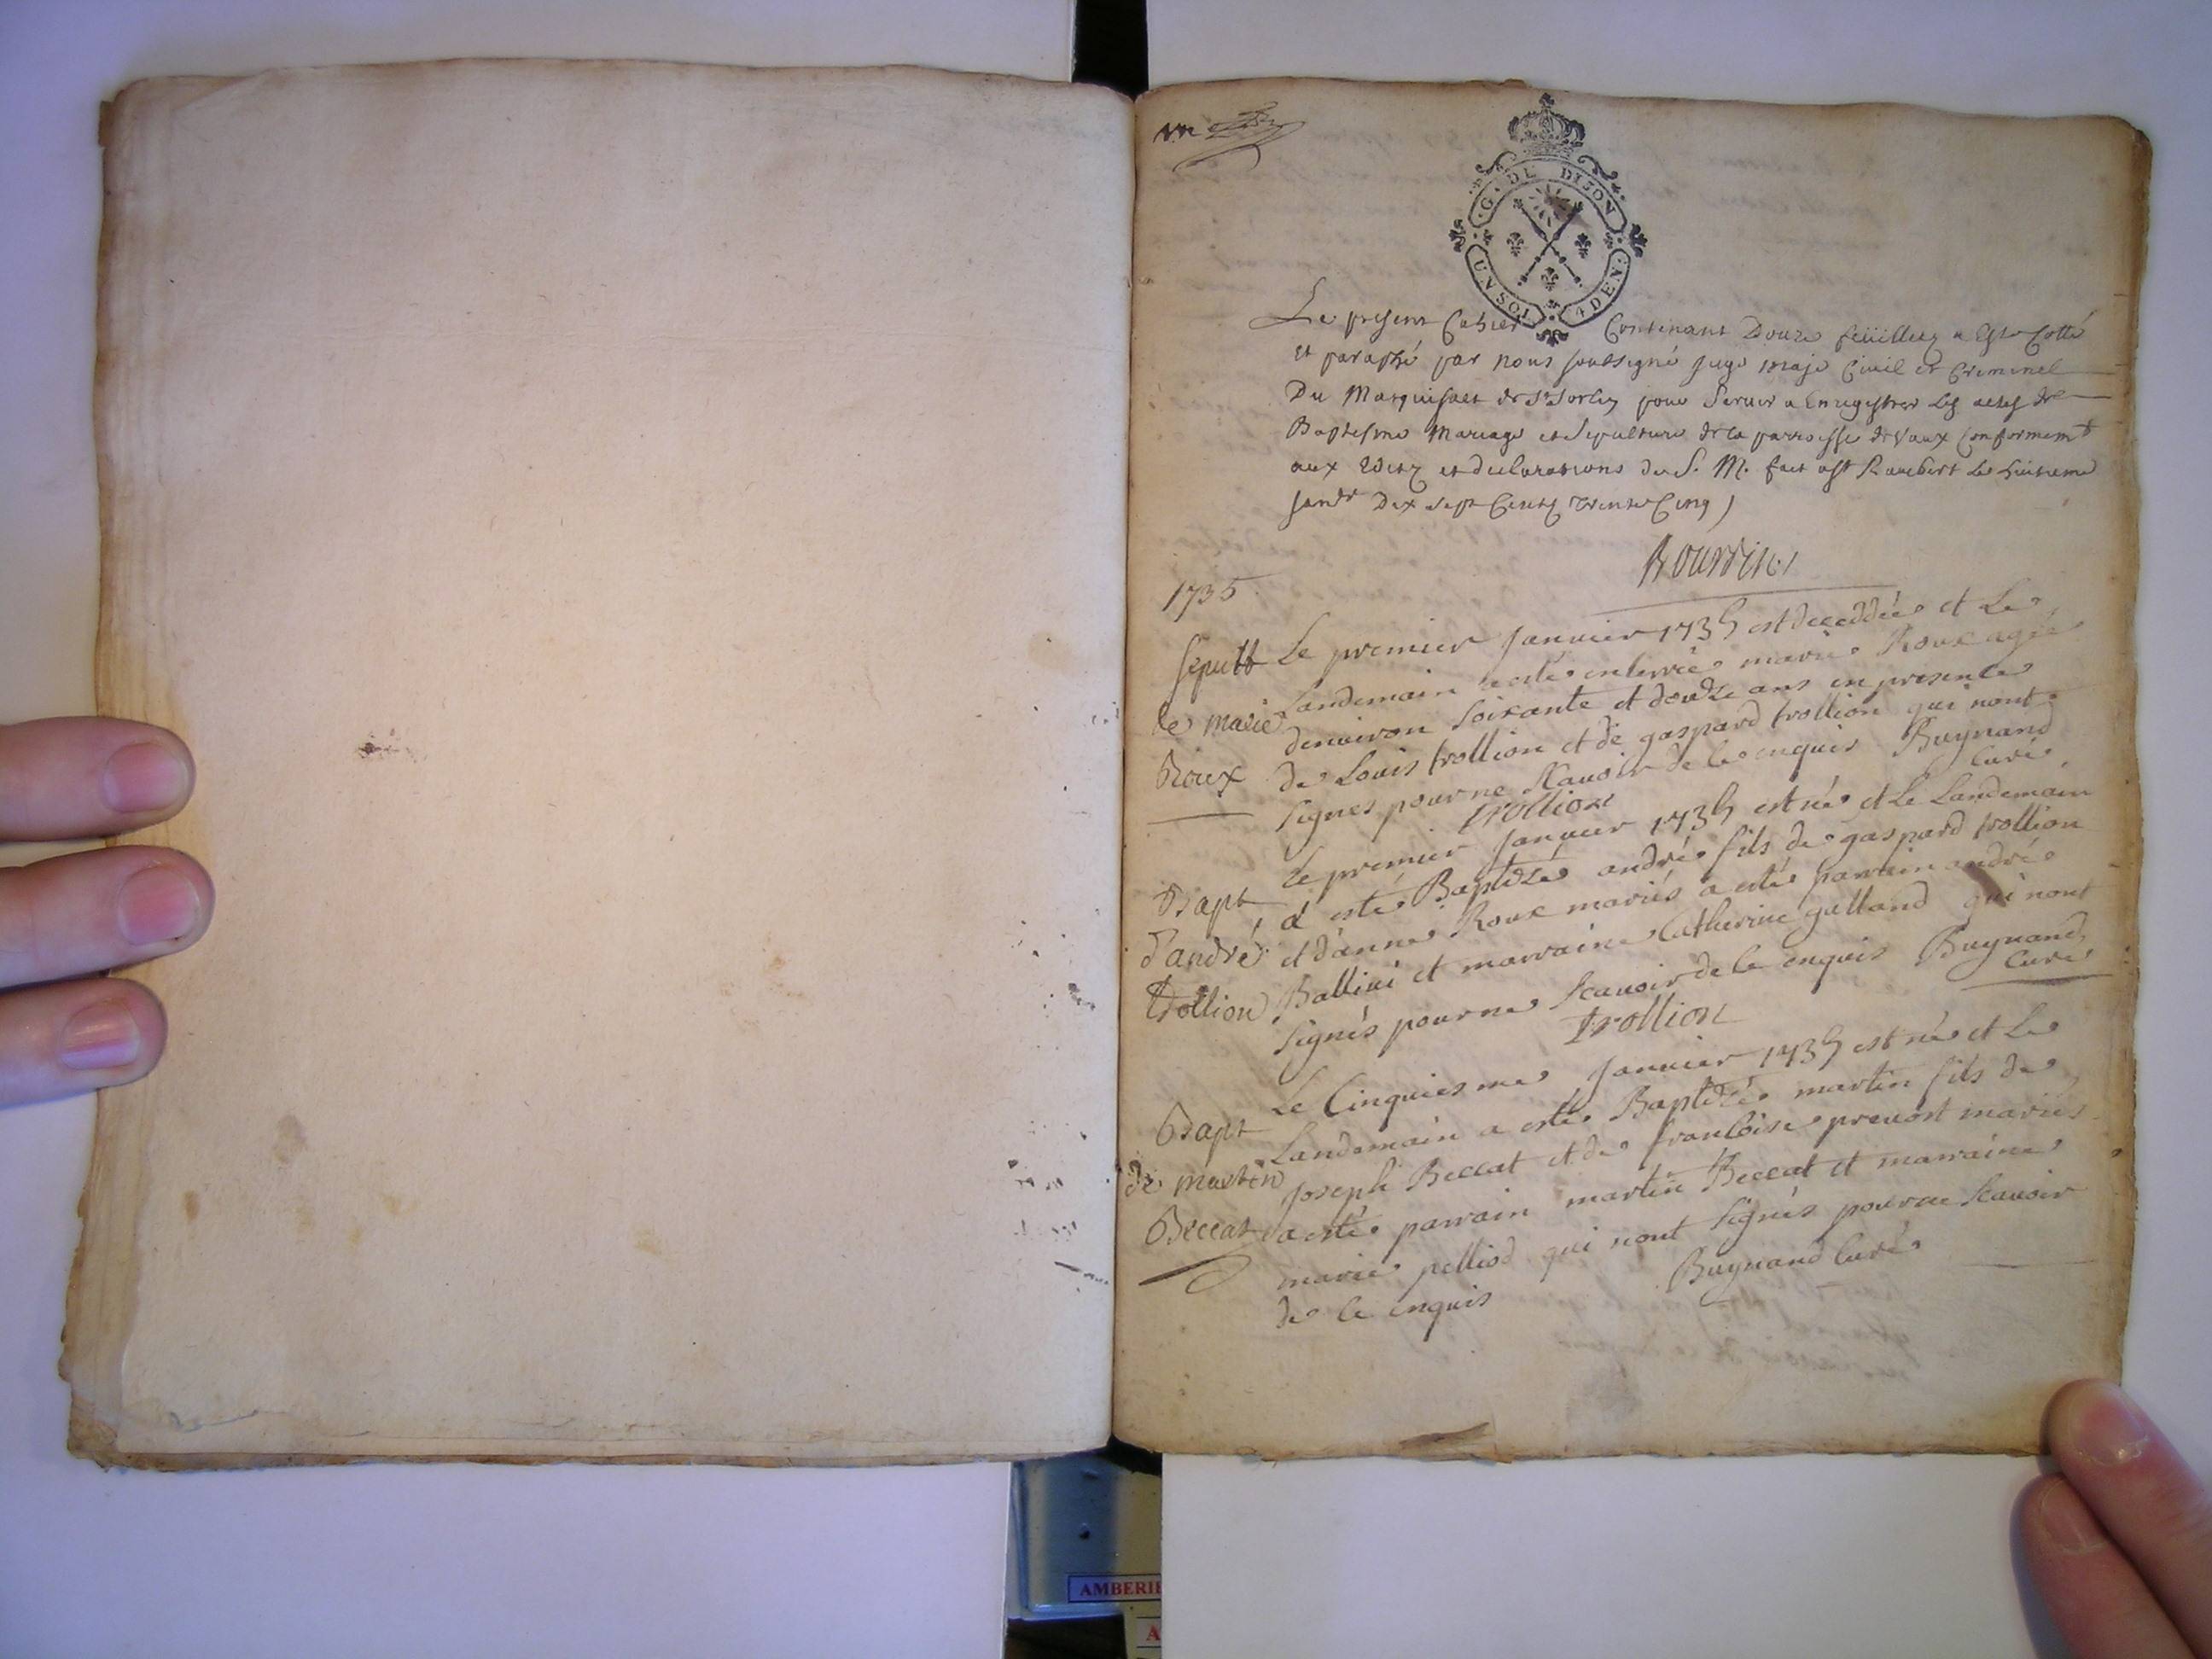 G. DE DIJON
UN SOL 4 DEN.
Le present Cahier Contenant Douze feüilletz a Esté Cotté
et paraphé par nous soubsigné juge maje Civil et Criminel
Du Marquisat de St Sorlin pour Servir a Enregistrer les actes de
Baptesme Mariage et Sepulture de la parroisse de Vaux Conformemt
aux Editz et declarations de S. M. fait a St Rambert le huitieme
janvr Dix sept Centz trente Cinq
1735
Sepult
de marie
Roux
Le premier Janvier 1735 est deceddée et Le
Landemain a esté enterrée marie Roux agée
denviron soixante et douze ans en presence
de Louis trollion et de gaspard trollion qui nont
signes pour ne scavoir de ce enquis Buynand
Curé
trollion
Bapt
d'andré
trollion
Le premier Janvier 1735 est né et Le Landemain
a esté Baptizé andré fils de gaspard trollion
et d'anne Roux mariés a esté parrain andré
Ballivi et marraine Catherine galland qui nont
signés pour ne scavoir de ce enquis Buynand
Curé
trollion
Bapt
de martin
Beccat
Le Cinquiesme Janvier 1735 est né et Le
Landemain a esté Baptizé martin fils de
Joseph Beccat et de francoise prevost mariés
a esté parrain martin Beccat et marraine
marie pelliod qui nont signés pour ne scavoir
de ce enquis Buynand Curé
AMBERIE
A